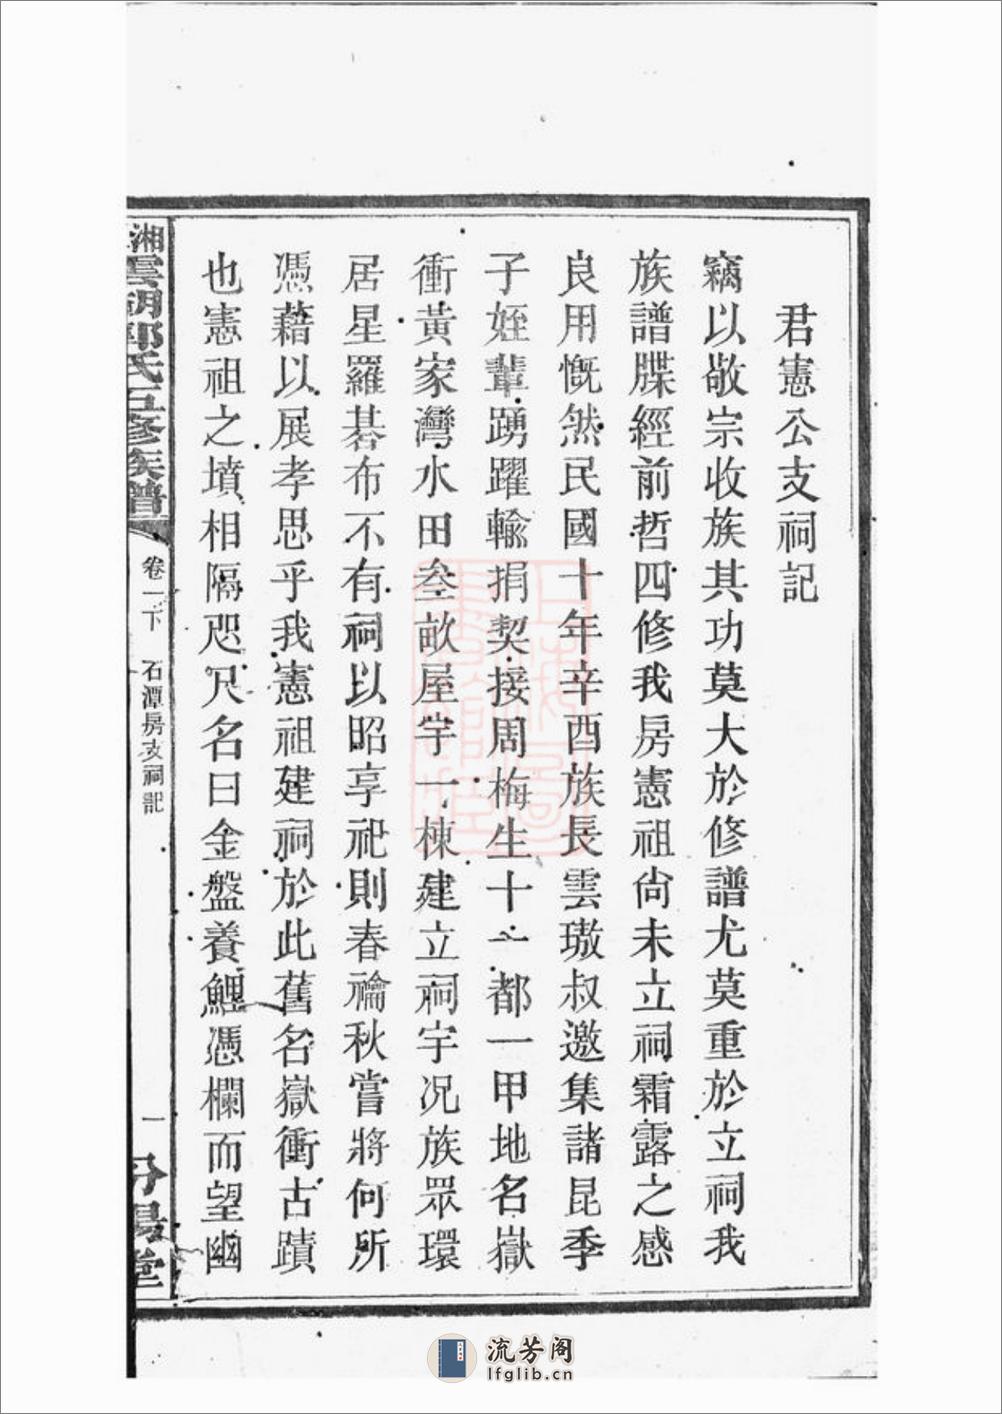 君憲公支祠記
竊以敬宗收族其功莫大於修譜尤莫重於立祠我
族譜牒經前哲四修我房憲祖尙未立祠霜露之感
良用慨然民國十年辛酉族長雲璈叔邀集諸昆季
子姪輩踴躍輸捐契接周梅生十一都一甲地名嶽
衝黃家灣水田叁畝屋宇一棟建立祠宇况族眾環
居星羅碁布不有祠以昭享祀則春禴秋嘗將何所
憑藉以展孝思乎我憲祖建祠於此舊名嶽衝古蹟
也憲祖之墳相隔咫尺名曰金盤養鯉憑欄而望幽
湘雲湖郭氏五修族譜
卷一下
石潭房支祠記
一
汾陽堂
流芳阁
lfglib.cn